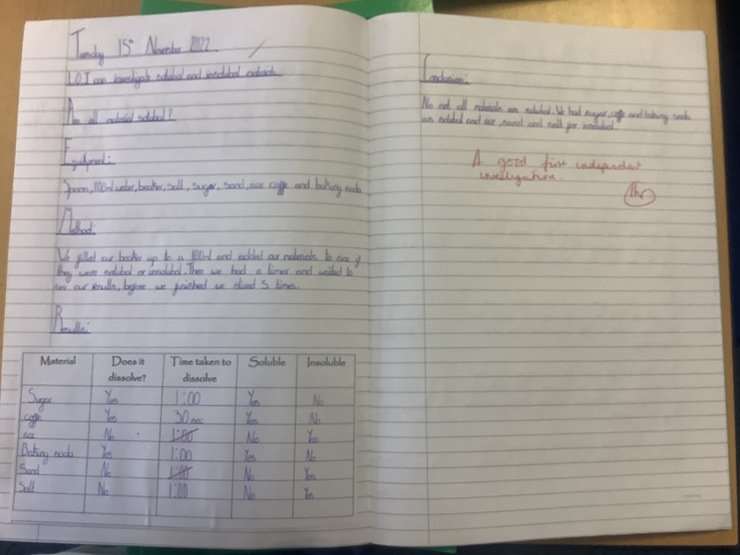 Tuesday 15th November 2022
L.O.I can investigate solubal and insolubal materials.
Are all material solubal?
Equipment:
Spoon, 100ml water, beaker, salt, sugar, sand, rice coffe and baking soda
Method:
We filled our beaker up to a 100ml and added our materials to see if
they were solubal or insolubal. Then we had a timer and waited to
see our results, before we finished we stired 5 times.
Results:
Material Does it dissolve? Time taken to dissolve Soluble Insoluble
Sugar Yes 1:00 Yes No
coffe Yes 30 sec Yes No
rice No 1:00 No Yes
Baking soda Yes 1:00 Yes No
Sand No 1:00 No Yes
Salt No 1:00 No Yes
Conclusion:
No not all materials are solubal. We had sugar, coffe and baking soda
as solubal and rice, sand and salt for insolubal.
A good first independent
investigation.